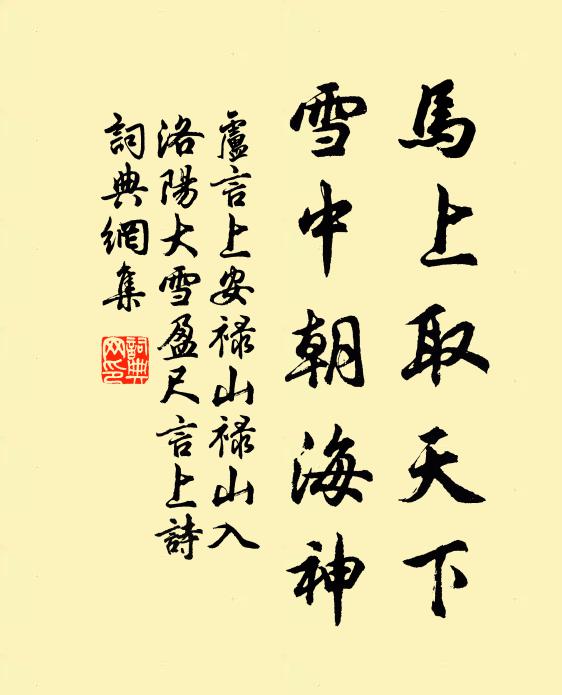 馬上取天下
雪中朝海神
盧言上安祿山祿山入
洛陽大雪盈尺言上詩
詞典網集